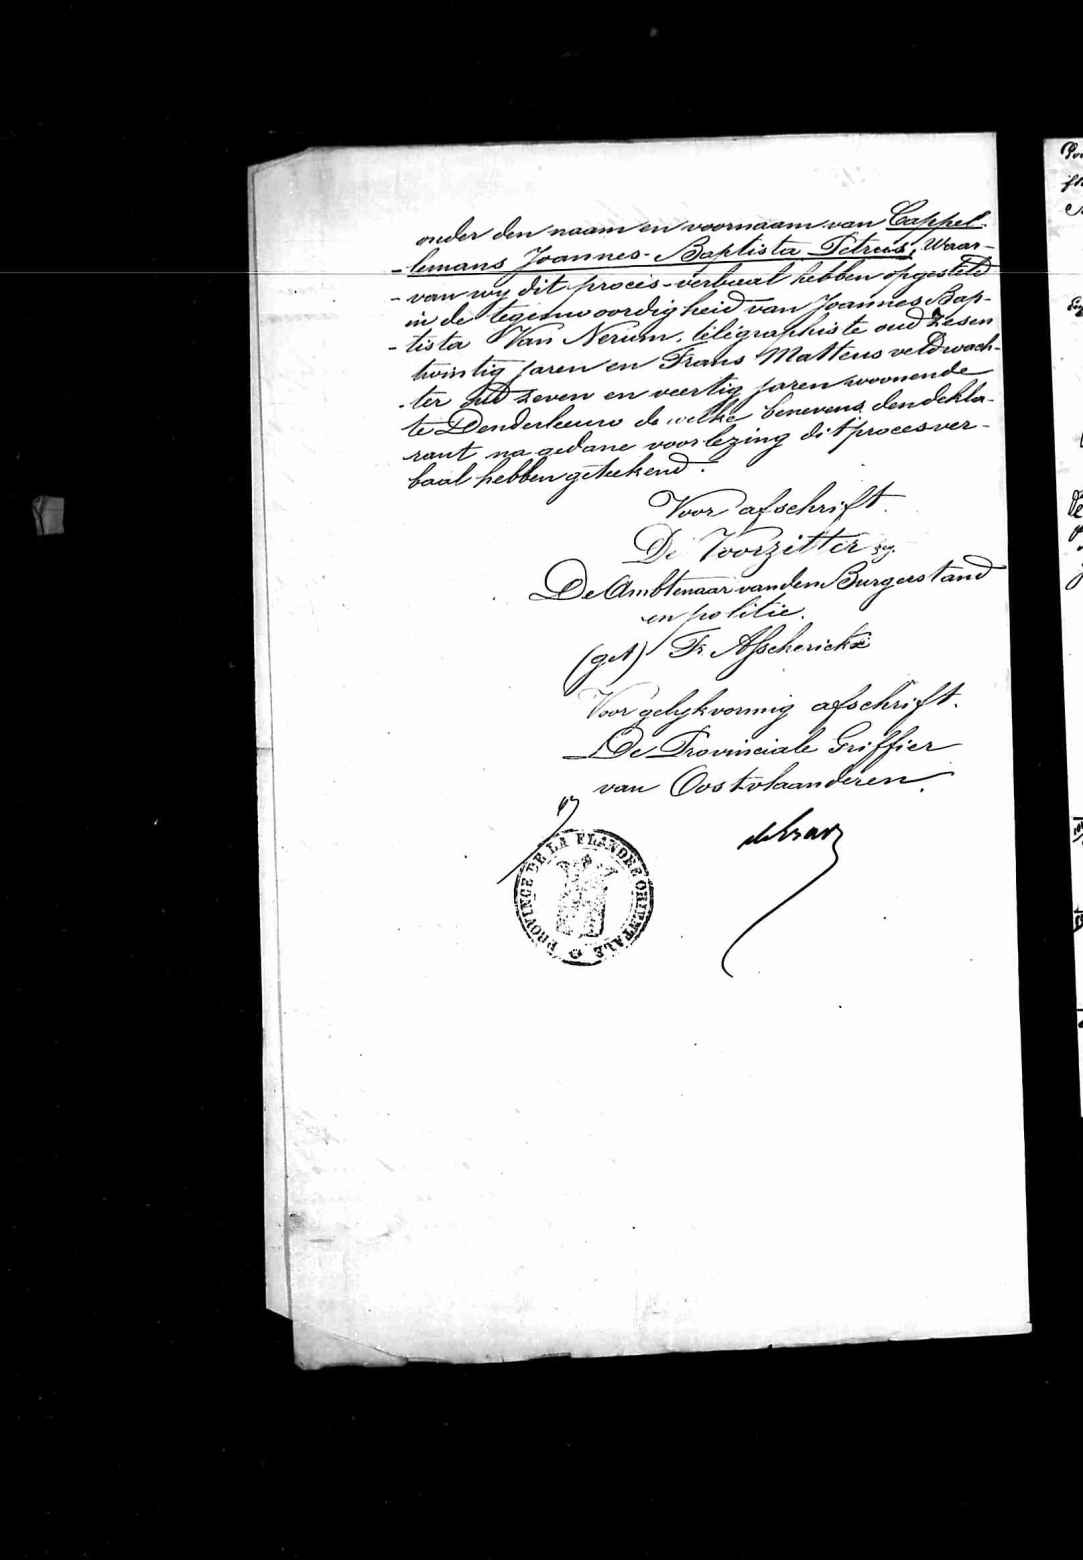 onder den naam en voornaam van Cappel-
-lemans Joannes-Baptista Petrus, Waar-
-van wy dit proces-verbaal hebben opgesteld
in de tegenwoordigheid van Joannes Bap-
-tista Van Nerum, télégraphiste oud zesen
twintig jaren en Frans Matteus veldwach-
-ter oud zeven en veertig jaren woonende
te Denderleeuw de welke benevens den dekla-
rant na gedane voorlezing dit proces ver-
baal hebben geteekend.
Voor afschrift.
De Voorzitter
De Ambtenaar van den Burgerstand
en politie.
(get) Fr
Voor gelykvormig afschrift.
De Provinciale Griffier
van Oostvlaanderen.
PROVINCE DE LA FLANDRE ORIENTALE